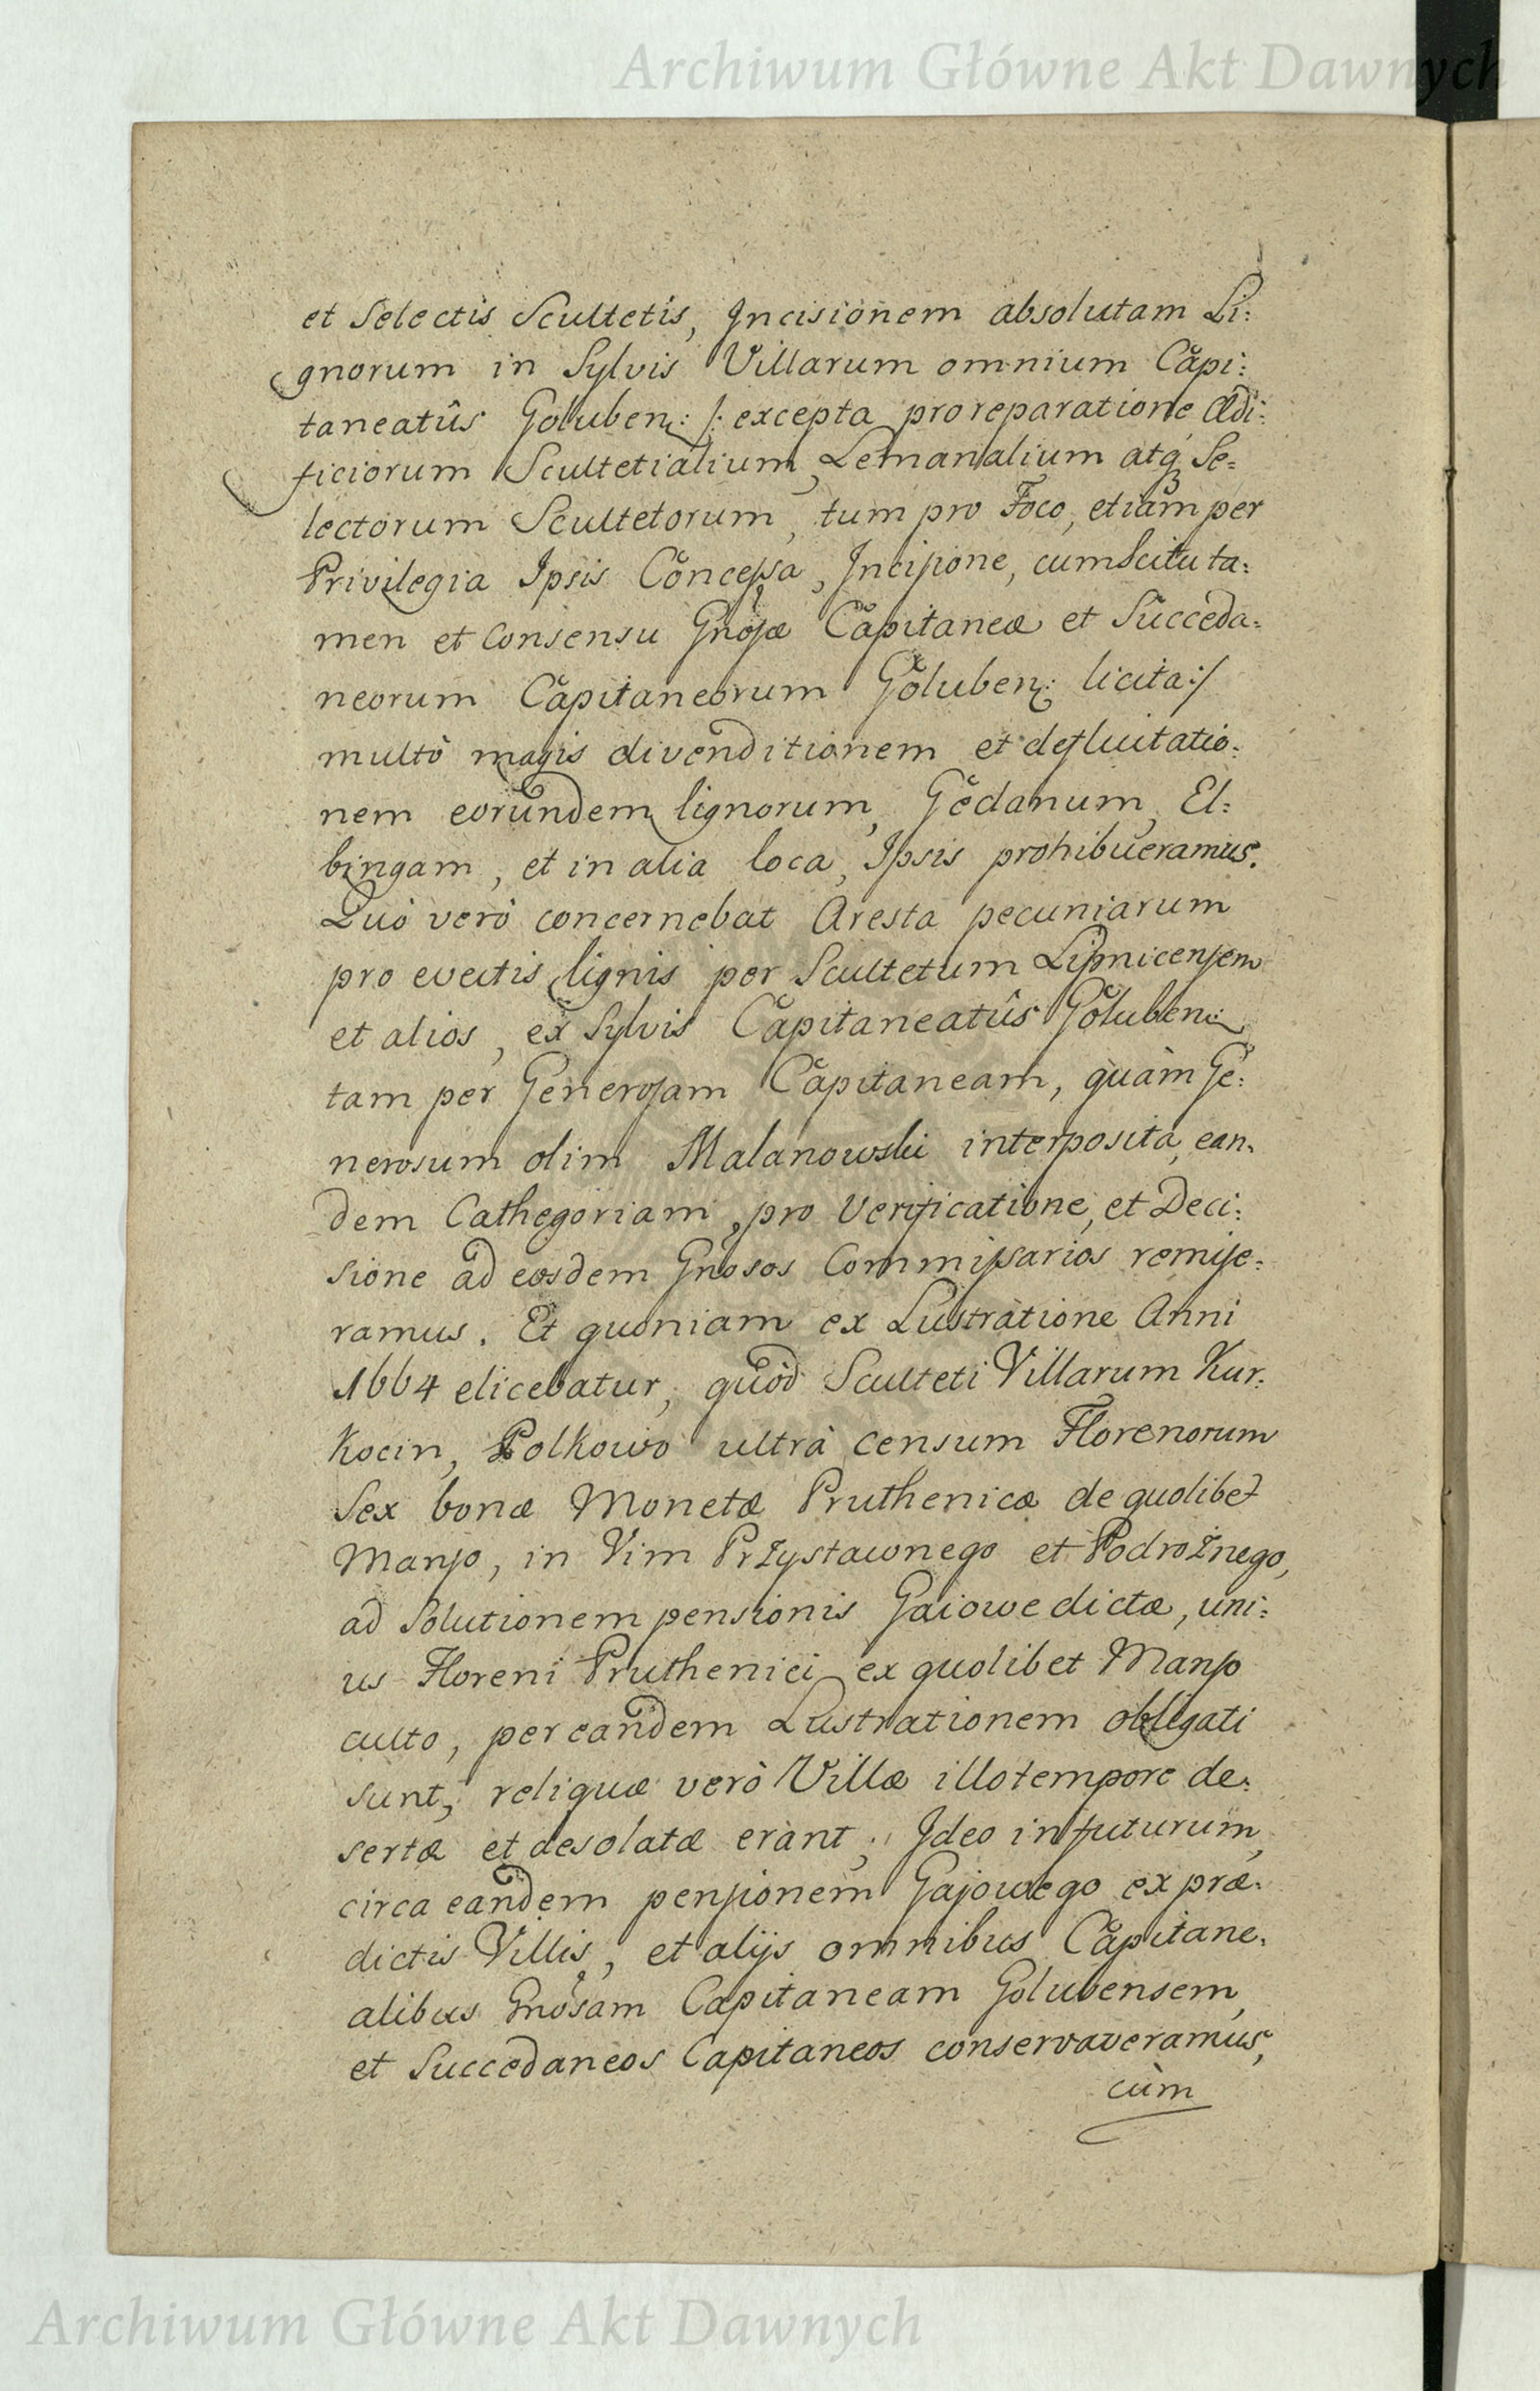 Archiwum Główne Akt Dawnych
et Selectis Scultetis, Incisionem absolutam Li:
gnorum in Sylvis Villarum omnium Capi:
taneatûs Goluben: /: excepta pro reparatione Ædi:
ficiorum Scultetialium, Lemanalium atq₃ Se=
lectorum Scultetorum, tum pro Foco, etiam per
Privilegia Ipsis Concessa, Incisione, cum Scitu ta:
men et Consensu Gnosæ Capitaneæ et Succeda:
neorum Capitaneorum Goluben: licita :/
multò magis divenditionem et defluitatio:
nem eorundem lignorum, Gedanum, El:
bingam, et in alia loca, Ipsis prohibueramus.
Quò verò concernebat Aresta pecuniarum
pro evectis lignis per Scultetum Lipnicensem
et alios, ex Sylvis Capitaneatûs Goluben:
tam per Generosam Capitaneam, quàm Ge:
nerosum olim Malanowski interposita, ean:
dem Cathegoriam, pro Verificatione, et Deci:
sione ad eosdem Gnosos Commissarios remise:
ramus. Et quoniam ex Lustratione Anni
1664 elicebatur, quòd Sculteti Villarum Kur:
kocin, Polkowo ultrà censum Florenorum
Sex bonæ Monetæ Pruthenicæ de quolibet
Manso, in Vim Przystawnego et Podrożnego,
ad Solutionem pensionis Gaiowe dictæ, uni:
us Floreni Pruthenici ex quolibet Manso
culto, per eandem Lustrationem obligati
sunt, reliquæ verò Villæ illo tempore de:
sertæ et desolatæ erant; Ideo in futurum,
circa eandem pensionem Gajowego ex præ:
dictis Villis, et alijs omnibus Capitane:
alibus Gnosam Capitaneam Golubensem,
et Succedaneos Capitaneos conservaveramus,
cùm
Archiwum Główne Akt Dawnych